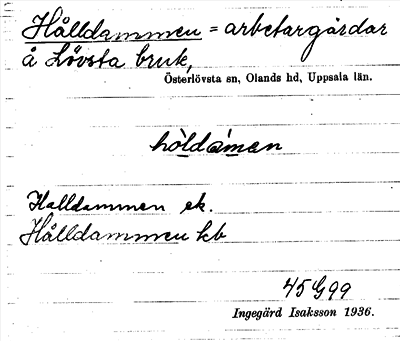 Hålldammen = arbetargårdar
å Lövsta bruk,
Österlövsta sn, Olands hd, Uppsala län.
hòldámen
Halldammen ek.
Hålldammen kb
45 G 99
Ingegärd Isaksson 1936.